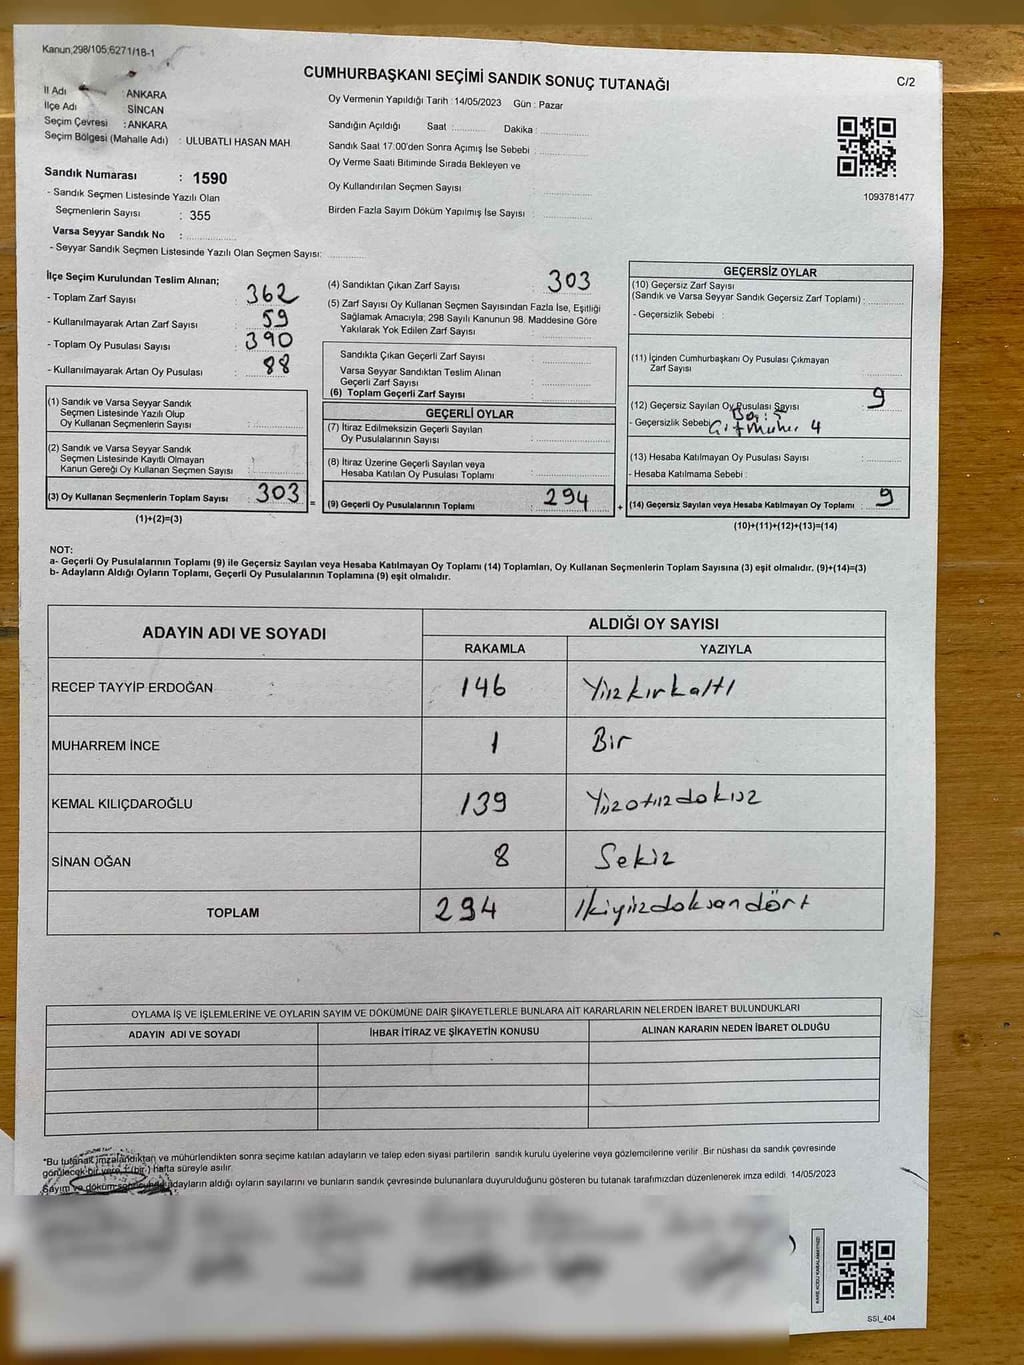 Kanun,298/105,6271/18-1
CUMHURBAŞKANI SEÇİMİ SANDIK SONUÇ TUTANAĞI
C/2
İl Adı : ANKARA
İlçe Adı : SİNCAN
Seçim Çevresi : ANKARA
Seçim Bölgesi (Mahalle Adı) : ULUBATLI HASAN MAH.
Sandık Numarası : 1590
- Sandık Seçmen Listesinde Yazılı Olan
Seçmenlerin Sayısı : 355
Varsa Seyyar Sandık No :
- Seyyar Sandık Seçmen Listesinde Yazılı Olan Seçmen Sayısı:
Oy Vermenin Yapıldığı Tarih : 14/05/2023 Gün : Pazar
Sandığın Açıldığı Saat : Dakika :
Sandık Saat 17.00'den Sonra Açımış İse Sebebi :
Oy Verme Saati Bitiminde Sırada Bekleyen ve
Oy Kullandırılan Seçmen Sayısı :
Birden Fazla Sayım Döküm Yapılmış İse Sayısı :
1093781477
İlçe Seçim Kurulundan Teslim Alınan;
- Toplam Zarf Sayısı : 362
- Kullanılmayarak Artan Zarf Sayısı : 59
- Toplam Oy Pusulası Sayısı : 390
- Kullanılmayarak Artan Oy Pusulası : 88
(1) Sandık ve Varsa Seyyar Sandık
Seçmen Listesinde Yazılı Olup
Oy Kullanan Seçmenlerin Sayısı :
(2) Sandık ve Varsa Seyyar Sandık
Seçmen Listesinde Kayıtlı Olmayan
Kanun Gereği Oy Kullanan Seçmen Sayısı :
(3) Oy Kullanan Seçmenlerin Toplam Sayısı : 303 =
(1)+(2)=(3)
(4) Sandıktan Çıkan Zarf Sayısı : 303
(5) Zarf Sayısı Oy Kullanan Seçmen Sayısından Fazla İse, Eşitliği
Sağlamak Amacıyla; 298 Sayılı Kanunun 98. Maddesine Göre
Yakılarak Yok Edilen Zarf Sayısı :
Sandıkta Çıkan Geçerli Zarf Sayısı :
Varsa Seyyar Sandıktan Teslim Alınan
Geçerli Zarf Sayısı :
(6) Toplam Geçerli Zarf Sayısı :
GEÇERLİ OYLAR
(7) İtiraz Edilmeksizin Geçerli Sayılan
Oy Pusulalarının Sayısı :
(8) İtiraz Üzerine Geçerli Sayılan veya
Hesaba Katılan Oy Pusulası Toplamı :
(9) Geçerli Oy Pusulalarının Toplamı : 294 +
GEÇERSİZ OYLAR
(10) Geçersiz Zarf Sayısı
(Sandık ve Varsa Seyyar Sandık Geçersiz Zarf Toplamı) :
- Geçersizlik Sebebi :
(11) İçinden Cumhurbaşkanı Oy Pusulası Çıkmayan
Zarf Sayısı :
(12) Geçersiz Sayılan Oy Pusulası Sayısı : 9
- Geçersizlik Sebebi 4
(13) Hesaba Katılmayan Oy Pusulası Sayısı :
- Hesaba Katılmama Sebebi :
(14) Geçersiz Sayılan veya Hesaba Katılmayan Oy Toplamı : 9
(10)+(11)+(12)+(13)=(14)
NOT:
a- Geçerli Oy Pusulalarının Toplamı (9) ile Geçersiz Sayılan veya Hesaba Katılmayan Oy Toplamı (14) Toplamları, Oy Kullanan Seçmenlerin Toplam Sayısına (3) eşit olmalıdır. (9)+(14)=(3)
b- Adayların Aldığı Oyların Toplamı, Geçerli Oy Pusulalarının Toplamına (9) eşit olmalıdır.
ADAYIN ADI VE SOYADI ALDIĞI OY SAYISI
RAKAMLA YAZIYLA
RECEP TAYYİP ERDOĞAN 146 Yüzkırkaltı
MUHARREM İNCE 1 Bir
KEMAL KILIÇDAROĞLU 139 Yüzotuzdokuz
SİNAN OĞAN 8 Sekiz
TOPLAM 294 İkiyüzdoksandört
OYLAMA İŞ VE İŞLEMLERİNE VE OYLARIN SAYIM VE DÖKÜMÜNE DAİR ŞİKAYETLERLE BUNLARA AİT KARARLARIN NELERDEN İBARET BULUNDUKLARI
ADAYIN ADI VE SOYADI İHBAR İTİRAZ VE ŞİKAYETİN KONUSU ALINAN KARARIN NEDEN İBARET OLDUĞU
*Bu tutanak imzalandıktan ve mühürlendikten sonra seçime katılan adayların ve talep eden siyasi partilerin sandık kurulu üyelerine veya gözlemcilerine verilir. Bir nüshası da sandık çevresinde
görülecek bir yere 1 (bir ) hafta süreyle asılır.
Sayım ve döküm adayların aldığı oyların sayılarını ve bunların sandık çevresinde bulunanlara duyurulduğunu gösteren bu tutanak tarafımızdan düzenlenerek imza edildi. 14/05/2023
KARE KODU KARALAMAYINIZ!
SSİ_404